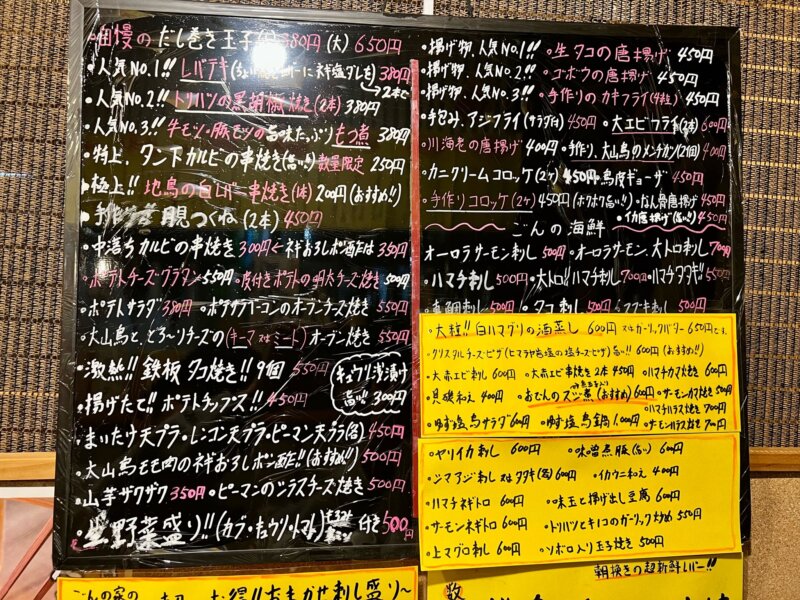 自慢の だし巻き玉子(小)380円 (大) 650円
・人気No.1!! レバテキ 380円
・人気No.2!! トリハツの黒胡椒焼き(2本) 380円
・人気No.3!! 牛モツ・豚モツの旨味たっぷり もつ煮 380円
・特上、タン下カルビの串焼き(旨い!!) 数量限定 250円
・極上!! 地鳥の白レバー串焼き(1本) 200円(おすすめ!!)
月見つくね(2本) 450円
・中落ちカルビの串焼き 300円 ←ネギおろしポン酢は 350円
・ポテトチーズ・グラタン 550円 ・皮付きポテトの明太チーズ焼き 500円
・ポテトサラダ 380円 ・ポテサラベーコンのオーブンチーズ焼き 550円
・大山鳥と、とろ〜りチーズの(キーマ又はミート)オーブン焼き 550円
・激熱!! 鉄板 タコ焼き!! 9個 550円
キュウリ浅漬け 旨い!! 300円
・揚げたて!! ポテトチップス!! 450円
・まいたけ天プラ・レンコン天プラ・ピーマン天プラ(各) 450円
・大山鳥モモ肉のネギおろしポン酢!!(おすすめ!!) 500円
・山芋ザクザク 350円 ・ピーマンのシラスチーズ焼き 500円
・生野菜盛り!! (カブ・キュウリ・トマト) 付き 500円
・揚げ物、人気No.1!! ・生タコの唐揚げ 450円
・揚げ物、人気No.2!! ・ゴボウの唐揚げ 450円
・揚げ物、人気No.3!! ・手作りのカキフライ(4粒) 450円
・手包み、アジフライ(サラダ付) 450円 ・大エビフライ(2本) 600円
・川海老の唐揚げ 400円 ・手作り、大山鳥のメンチカツ(2個) 400円
・カニクリームコロッケ(2ヶ) 450円 ・鳥皮ギョーザ 450円
・手作りコロッケ(2ヶ) 450円(ホクホク旨い!!) ・なん骨唐揚げ 450円
・イカ唐揚げ(旨い!!) 450円
〜ごんの海鮮〜
・オーロラサーモン刺し 500円 ・オーロラサーモン、大トロ刺し 700円
・ハマチ刺し 500円 ・大トロ!! ハマチ刺し 700円 ・ハマチタタキ!! 550円
・真鯛刺し 500円 ・タコ刺し 500円 500円
・大粒!! 白ハマグリの酒蒸し 600円 又はガーリックバター 650円です。
・クリスタルチーズ・ピザ(ヒマラヤ岩塩の塩チーズピザ) 旨い!! 600円(おすすめ!!)
・大赤エビ刺し 600円 ・大赤エビ串焼き2本 450円 ・ハマチカマ焼き 600円
・貝磯和え 400円 ・おでんのスジ煮(おすすめ) 600円 ・サーモンカマ焼き 500円
・ハマチハラス焼き 700円
・ゆず塩鳥サラダ 600円 ・ゆず塩鳥鍋 1,000円 ・サーモンハラス焼き 700円
・ヤリイカ刺し 600円 ・味噌煮豚(旨い) 600円
・シマアジ刺し又はタタキ(各) 600円 ・イカウニ和え 400円
・ハマチネギトロ 600円 ・味玉と揚げ出し豆腐 600円
・サーモンネギトロ 600円 ・トリハツとキノコのガーリック炒め 550円
・上マグロ刺し 600円 ・ソボロ入り玉子焼き 500円
朝挽きの超新鮮レバー!!
数
ごんの家の お得!! おまかせ刺し盛り〜